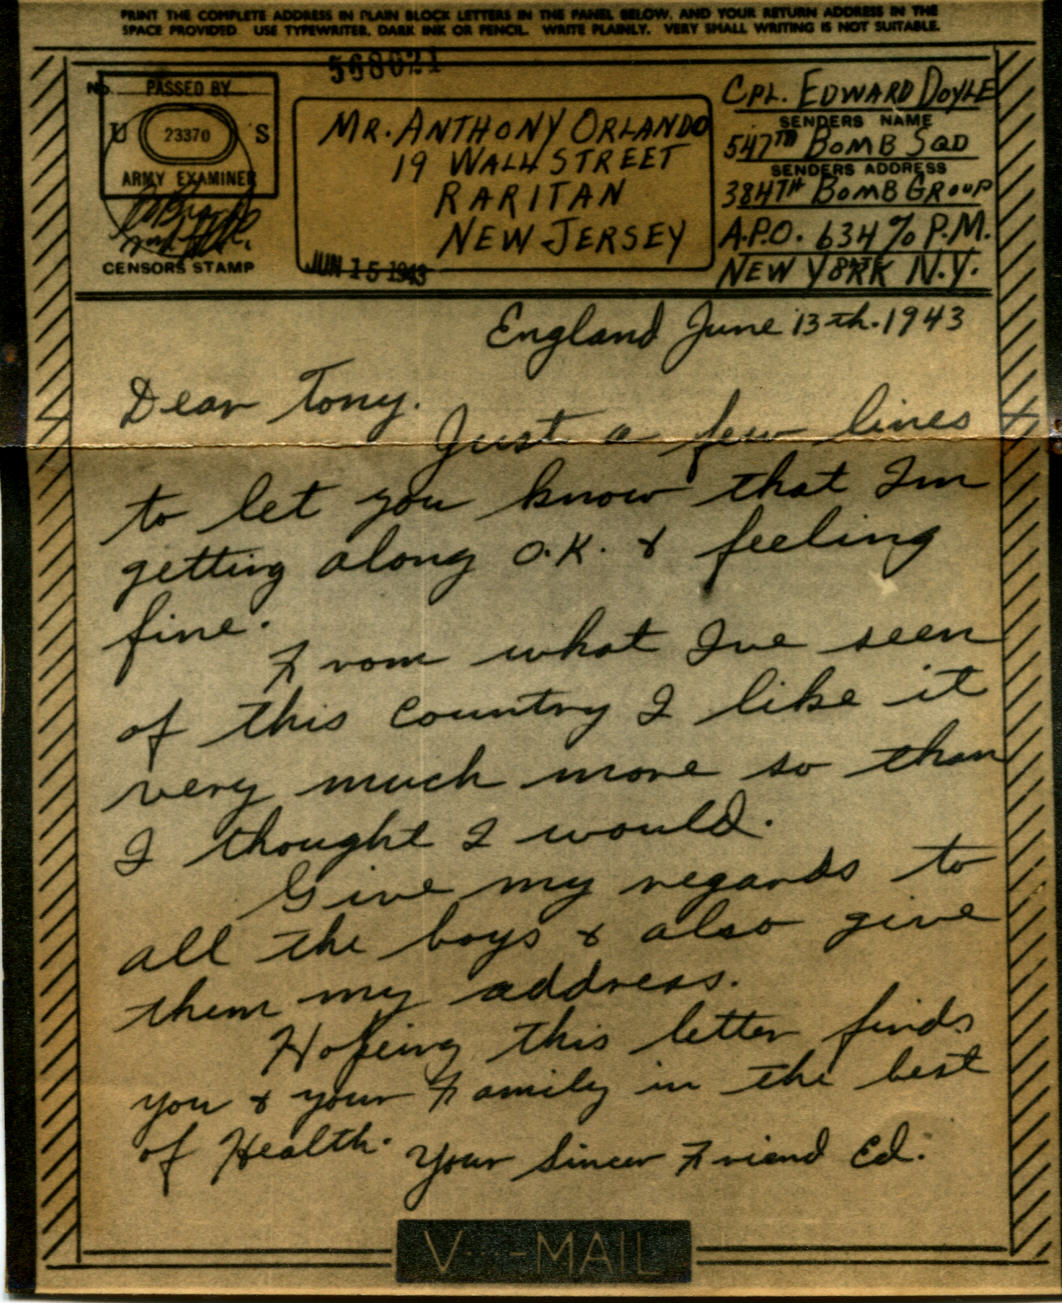 PRINT THE COMPLETE ADDRESS IN PLAIN BLOCK LETTERS IN THE PANEL BELOW, AND YOUR RETURN ADDRESS IN THE
SPACE PROVIDED USE TYPEWRITER, DARK INK OR PENCIL. WRITE PLAINLY. VERY SMALL WRITING IS NOT SUITABLE.
568021
No.
PASSED BY
U 23370 S
ARMY EXAMINER
CENSORS STAMP
MR. ANTHONY ORLANDO
19 WALL STREET
RARITAN
NEW JERSEY
JUN 15 1943
CPL. EDWARD DOYLE
SENDERS NAME
547TH BOMB SQD
SENDERS ADDRESS
384TH BOMB GROUP
A.P.O. 634 % P.M.
DATE
NEW YORK N.Y.
England June 13th. 1943
Dear Tony.
Just a few lines
to let you know that I'm
getting along O.K. & feeling
fine.
From what I've seen
of this country I like it
very much more so than
I thought I would.
Give my regards to
all the boys & also give
them my address.
Hoping this letter finds
you & your Family in the best
of Health.
Your Sincer Friend Ed.
V···-MAIL